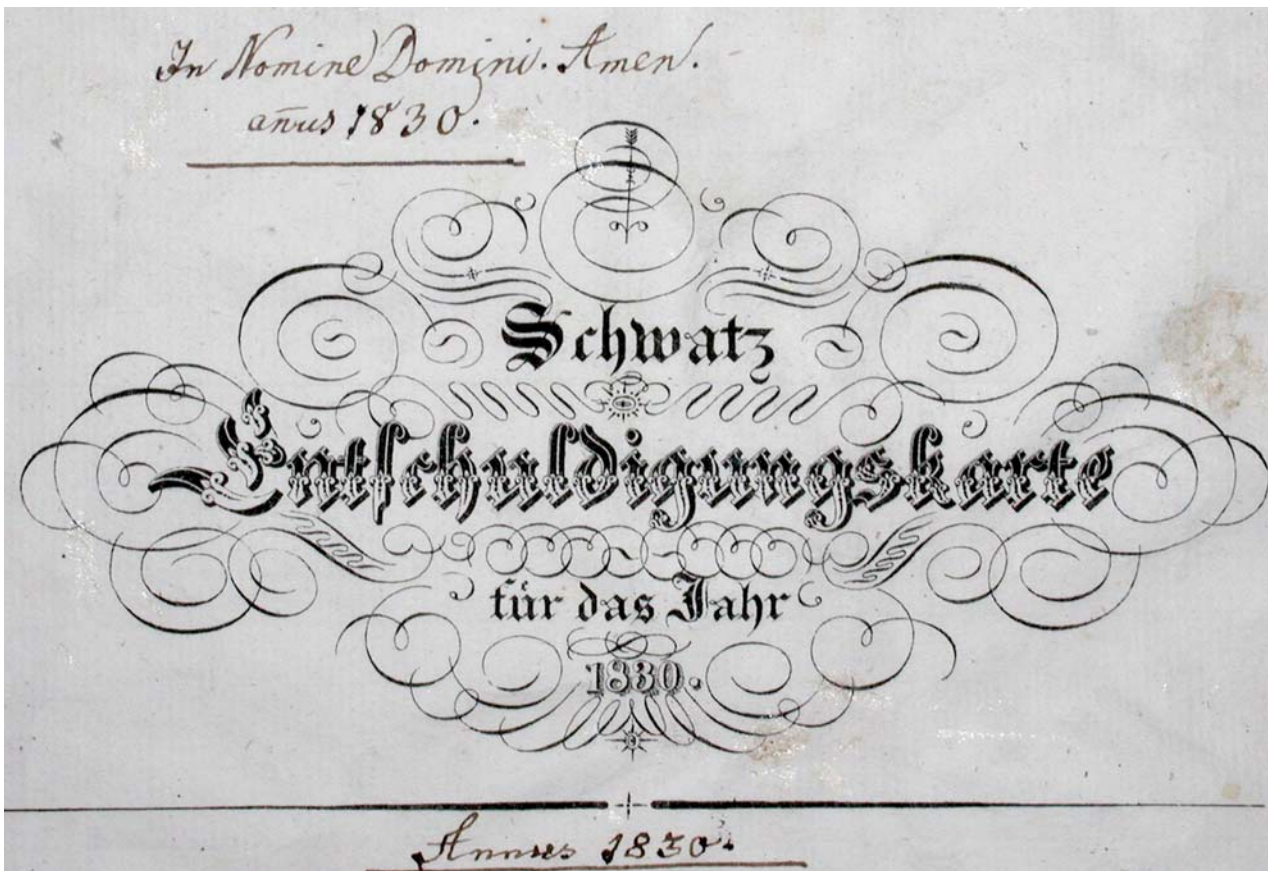 In Nomine Domini. Amen.
an̄us 1830.
Schwatz
Entſchuldigungskarte
für das Jahr
1830.
Annus 1830.